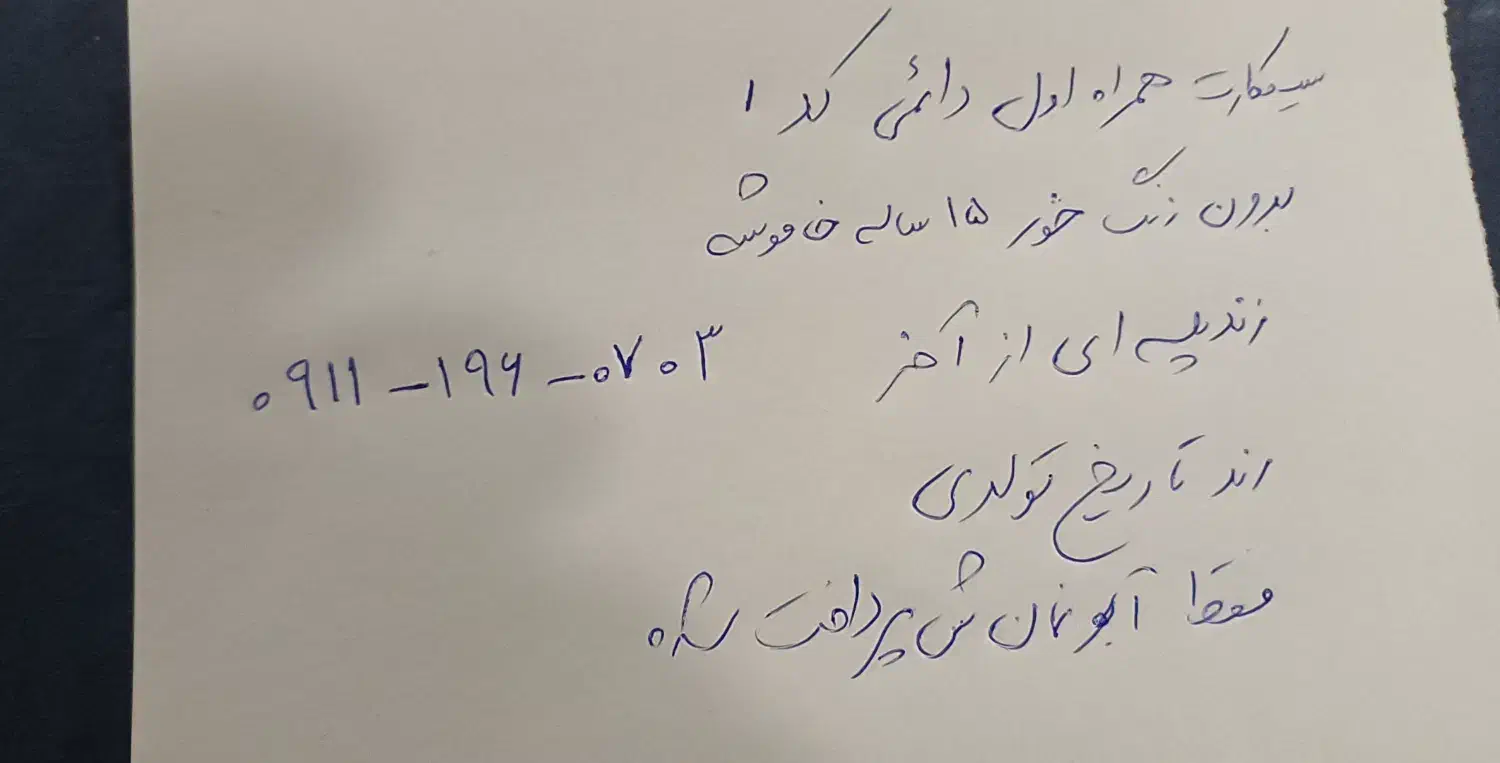 سیمکارت همراه اول دائمی کد ۱
بدون زنگ خور ۱۵ ساله خاموشه
رند پله ای از آخر ۰۹۱۱-۱۹۶-۰۷۰۳
رند تاریخ تولدی
فقط آبونمانش پرداخت شده